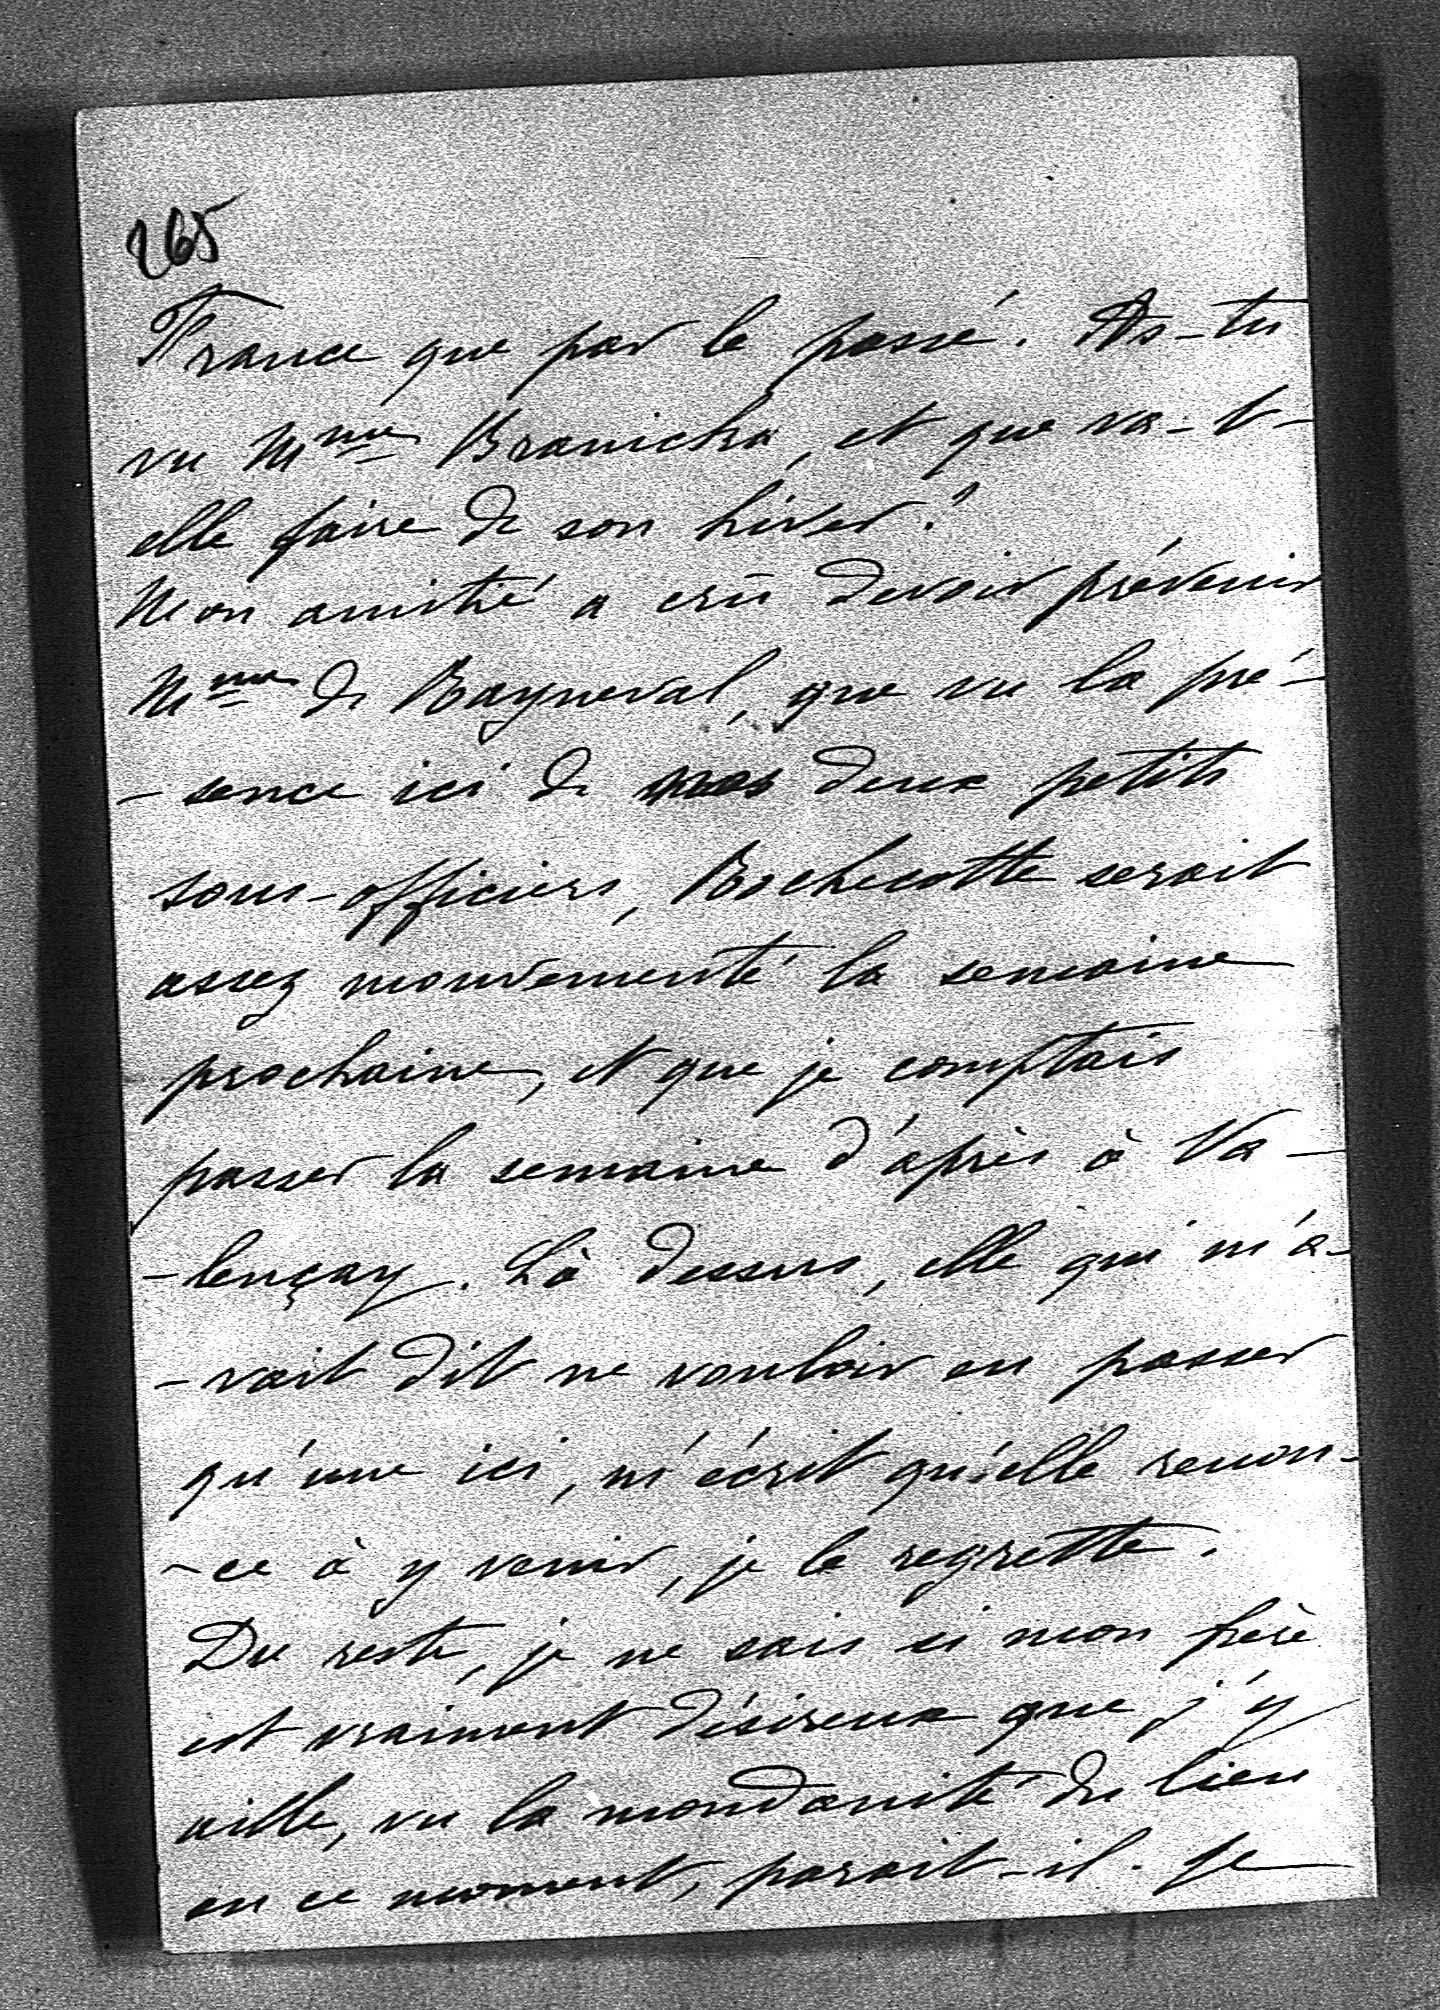 265
France que par le passé. As-tu
vu Mme Branicka, et que va-t-
elle faire de son hiver?
Mon amitié a crû devoir prévenir
Mme de Rayneval, que vu la pré-
-sence ici de nos deux petits
sous-officiers, Rochecotte serait
assez mouvementé la semaine
prochaine, et que je comptais
passer la semaine d'après à Va-
-lençay. Là dessus, elle qui m'a-
-vait dit ne vouloir en passer
qu'une ici, m'écrit qu'elle renon-
-ce à y venir, je le regrette.
Du reste, je ne sais si mon frère
est vraiment désireux que j'y
aille, vu la mondanité du lieu
en ce moment, parait-il. Je